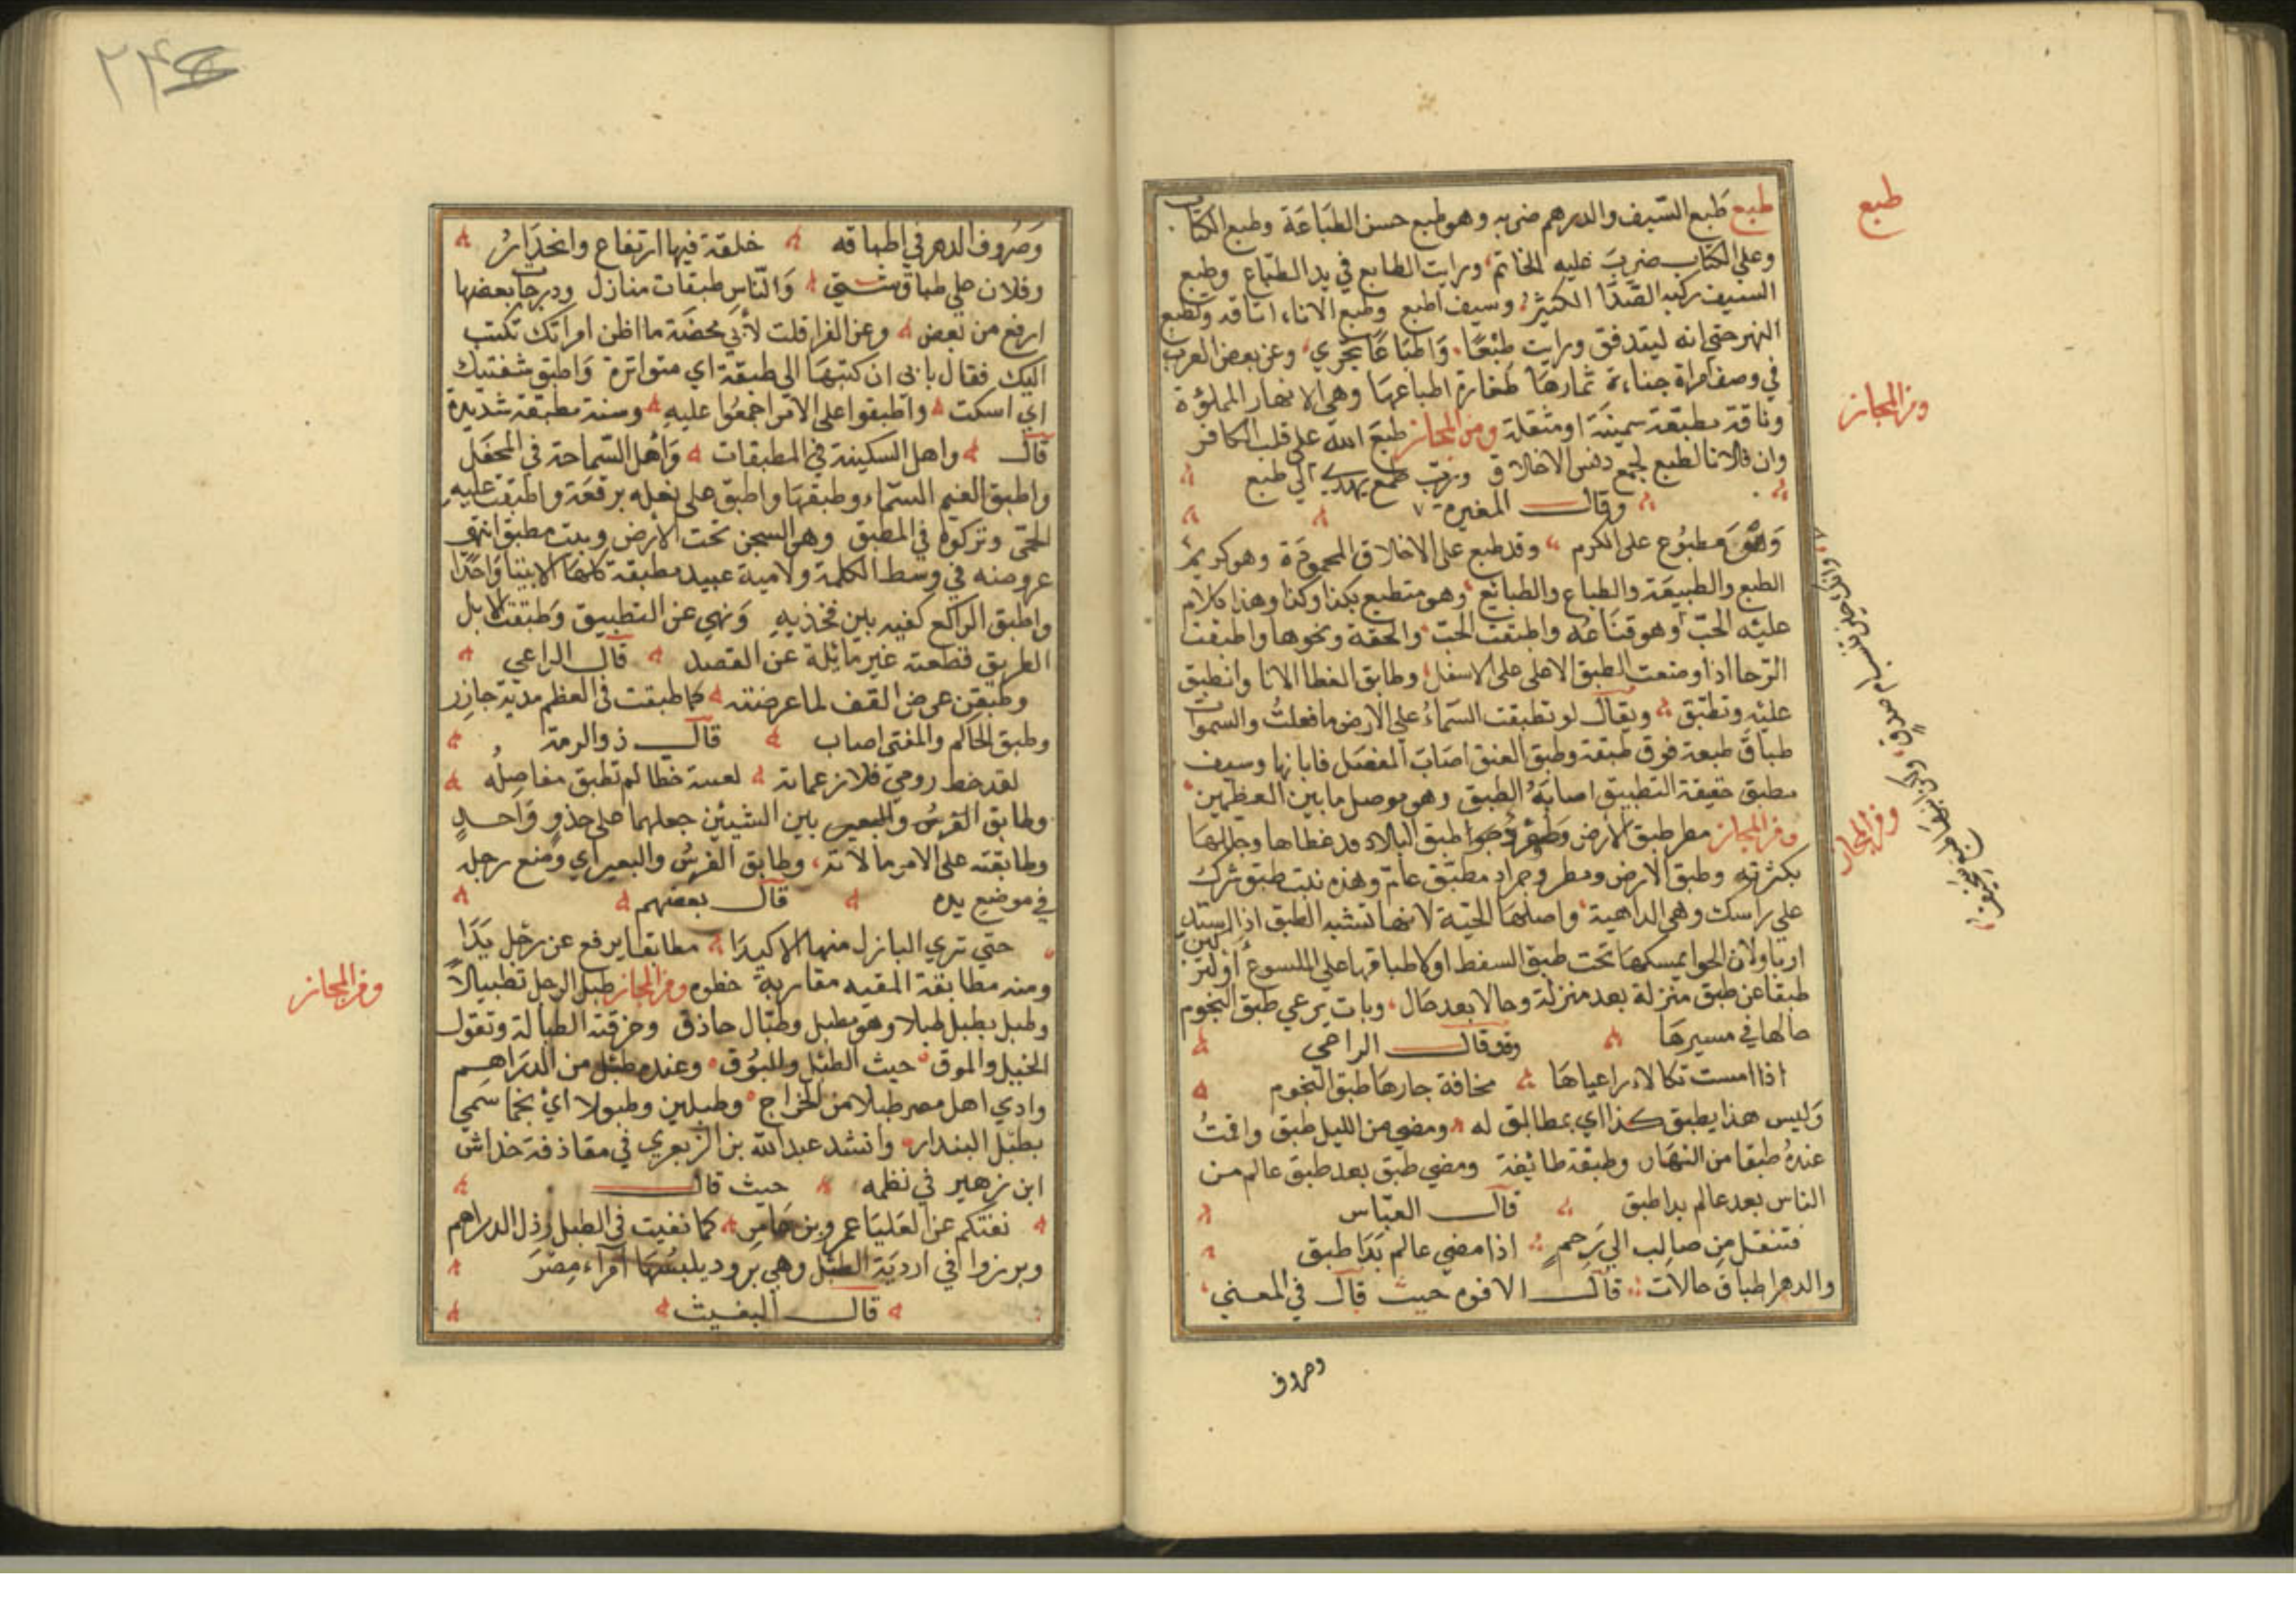 طبع
طبع طَبع السّيف والدرهم ضربه وهو طبع حسن الطبَاعَة وطبع الكتاب
وعلى الكتاب ضربَ عليه الخاتم ورايت الطابع في يد الطبّاع وطبع
السيف ركبه الصَّدَا الكثير وسيف اطبع وطبع الاناء اتاقه وتطبع
النهر حتى انه ليتدفق ورايت طبْعًا وَاطبَاعًا تجري وعن بعض العرب
في وصف امراة جناءة ثمارها طفارة اطباعها وهي الانهار المملؤة
وناقة مطبعة سمينَة او مثقلة ومن المجاز طبعَ الله على قلب الكافر
ومن المجاز
وان فلانا لطبع لجمع دنس الاخلاق وربّ طمع يهدي الي طبع
وقال المغيرة ٧
وَهْوَ مطبُوع على الكرم وقد طبع على الاخلاق المحمودَة وهو كريمُ
الطبع والطبيعَة والطباع والطبائع وهو متطبع بكذا وكذا وهذا كلام
عليْه الحبّ وهو قنَاعهُ واطبقت الحبّ والحقة ونحوها واطبقت
الرّحا اذا وضعت الطبق الاعلى على الاسفل وطابق الغطا الانا وانطبق
عليْهِ وتطبّق ويقال لو تطبقت السّماءُ علي الارض ما فعلتُ والسموات
طباقٌ طبعة فوق طبقة وطبق العنق اصَابَ المفصَل فابانها وسيف
مطبق حقيقة التطبيق اصابَةُ الطبق وهو موصل ما بين العظمين
ومن المجاز مطر طبق الارض اطبق البلاد قد غطاها وجللهَا
ومن المجاز
بكثرتهِ وطبق الارض ومطر وجراد مطبّق عامّ وهذه نبت طبق شرك
علي راسك وهي الداهية واصلهَا الحيّة لانهَا تشبه الطبق اذا استدار
اريا ولان الحوا يمسكهَا تحت طبق السفط او لاطباقها على الملسوع أو لتركبن
طبقا عن طبق منزلة بعد منزلة وحالا بعد حَال وبات يرعي طبق النجوم
حالها في مسيرهَا وقد قال الراعي
اذا امست تكالا راعياهَا مخافة جارهَا طبق النجوم
وَليس هذا يطبق كذا اي بمطابق له ومضي من الليل طبق واقمتُ
عندهُ طبقا من النهار وطبقة طائفة ومضي طبق بعد طبق عالم من
الناس بعد عالم بدا طبق قال العبّاس
فتنقل من صالب الي رَحمٍ اذا مضي عالم بَدَا طبق
والدهر اطباق حالات قال الافوه حيث قال في المعني
وصروف
وَصُروف الدهر في اطباقه خلقة فيها ارتفاع وانحدَارُ
وفلان علي طباق شتي وَالنّاس طبقات منازل ودرجات بعضها
ارفع من بعض وعن الفرا قلت لأبي محضَة ما اظن امراتك تكتب
اليك فقال بابى ان كتبهَا الى طبقة اي متواترة وَاطبق شفتيك
اي اسكت واطبقوا على الامر اجمعُوا عليهِ وسنة مطبقة شديدة
قال واهل السكينة في المطبقات وَأهل السّماحة في المحفل
واطبق الغيم السّماء وطبقهَا واطبق على نعله برقعَة واطبقت عليه
الحمّى وتركوه في المطبق وهو السجن تحت الارض وبيت مطبق انتهى
عروضه في وسط الكلمة ولامية عبيد مطبقة كلهَا الا بيتا وَاحدًا
واطبق الراكع كفيه بين فخذيهِ وَنهي عن التطبيق وَطبقت الابل
الطريق قطعته غير مائلة عن القصد قال الراعي
وطبقن عرض القف لما عرضنه كما طبقت في العظم مدية جازِر
وطبق الحاكم والمفتي اصاب قال ذو الرمة
لقد خط رومي فلا زعماته لعتبة خطا لم تطبق مفاصِلُه
وطابق الفرسُ والبعير بين الشيئين جعلهما على حذوٍ وَاحدٍ
وطابقته على الامر مالاته وطابق الفرسُ والبعير اي وضع رجله
في موضع يده قال بعضهم
حتي تري البازل منها الاكبدَا مطابقا يرفع عن رجْل يَدَا
ومنه مطابقة المقيد مقاربة خطوه ومن المجاز طبل الرجل تطبيلاً
ومن المجاز
وطبل يطبل طبلا وهو مطبل وطبّال حاذق وحرفته الطبالة وتقول
الخيل والموق حيث الطبْل والبُوق وعنده طبْل من الدرَاهم
وادي اهل مصر طبلا من الخراج وطبلين وطبولا ايْ نجما سمي
بطبْل البندار وانشد عبد الله بن الزبعري في مقاذفة خداش
ابن زهير في نظمه حيث قال
نفتكم عن العَليَا عمرو بن عَامِر كما نفيت في الطبل رذل الدراهم
وبرزوا في ارديَة الطبْل وهي برود يلبسُهَا امرَاء مصْرَ
قال البعيث